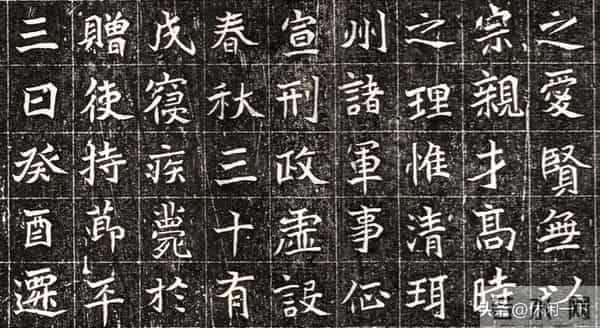 之愛賢無以
宗親才高時
之理惟清珥
州諸軍事征
宣刑政虛設
春秋三十有
戊寢疾薨於
贈使持節平
三日癸酉遷